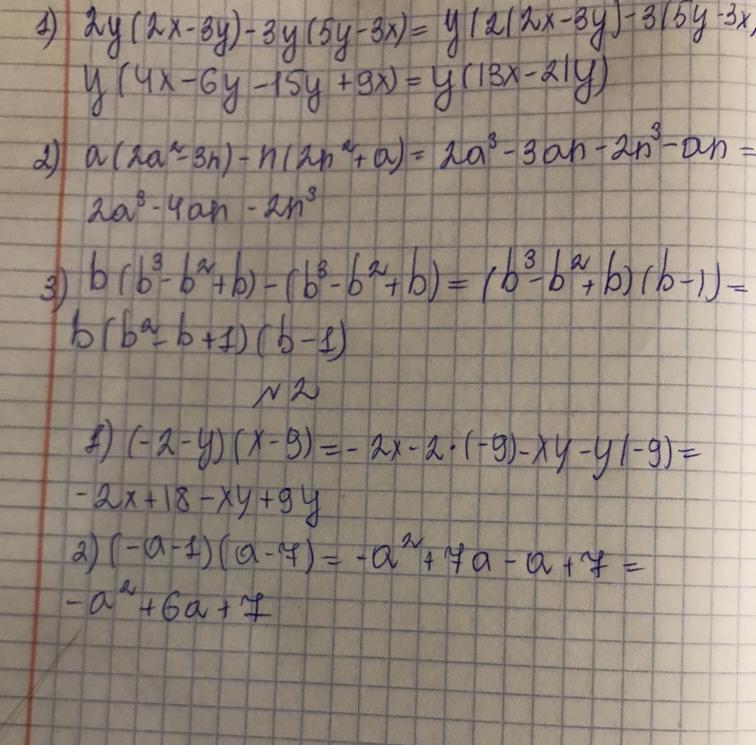 1) 2y(2x-3y)-3y(5y-3x)= y(2(2x-3y)-3(5y-3x)
y(4x-6y-15y+9x)=y(13x-21y)
2) a(2a²-3n)-n(2n²+a)= 2a³-3an-2n³-an=
2a³-4an-2n³
3) b(b³-b²+b)-(b³-b²+b)=(b³-b²+b)(b-1)=
b(b²-b+1)(b-1)
№2
1) (-2-y)(x-9)=-2x-2·(-9)-xy-y(-9)=
-2x+18-xy+9y
2) (-a-1)(a-7)=-a²+7a-a+7=
-a²+6a+7